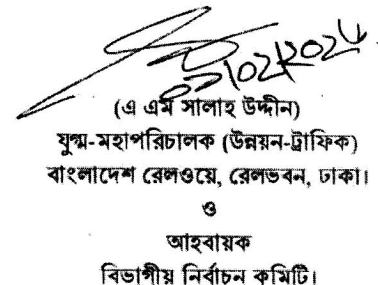 (এ এম সালাহ উদ্দীন)
যুগ্ম-মহাপরিচালক (উন্নয়ন-ট্রাফিক)
বাংলাদেশ রেলওয়ে, রেলভবন, ঢাকা।
ও
আহবায়ক
বিভাগীয় নির্বাচন কমিটি।